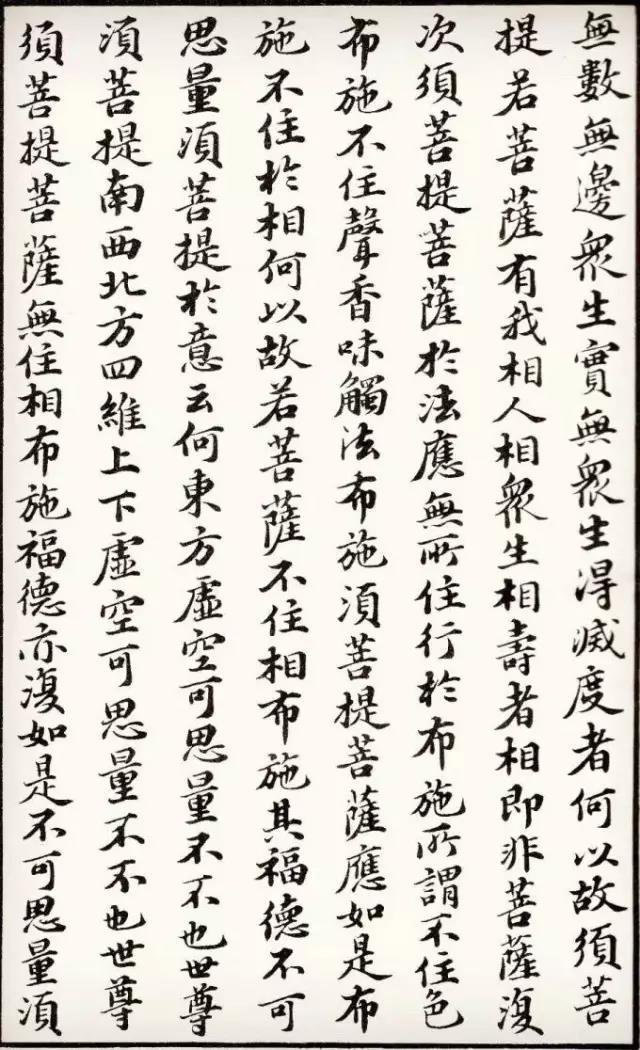 無數無邊眾生實無眾生得滅度者何以故須菩
提若菩薩有我相人相眾生相壽者相即非菩薩復
次須菩提菩薩於法應無所住行於布施所謂不住色
布施不住聲香味觸法布施須菩提菩薩應如是布
施不住於相何以故若菩薩不住相布施其福德不可
思量須菩提於意云何東方虛空可思量不不也世尊
須菩提南西北方四維上下虛空可思量不不也世尊
須菩提菩薩無住相布施福德亦復如是不可思量須